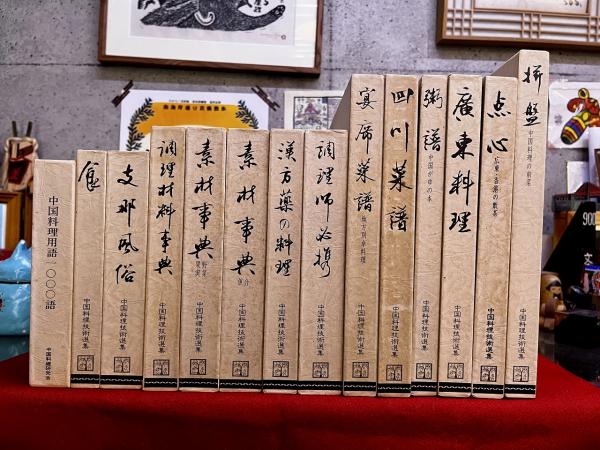 中国料理用語一〇〇〇語
中国料理研究会
食
中国料理技術選集
支那風俗
中国料理技術選集
調理材料事典
中国料理技術選集
素材事典
野菜
果実
中国料理技術選集
素材事典
魚介
中国料理技術選集
漢方薬の料理
中国料理技術選集
調理師必携
中国料理技術選集
宴席菜譜
地方別卓料理
中国料理技術選集
四川菜譜
中国料理技術選集
粥譜
中国がゆの本
中国料理技術選集
廣東料理
中国料理技術選集
点心
広東・香港の飲茶
中国料理技術選集
拼盤
中国料理の前菜
中国料理技術選集
900